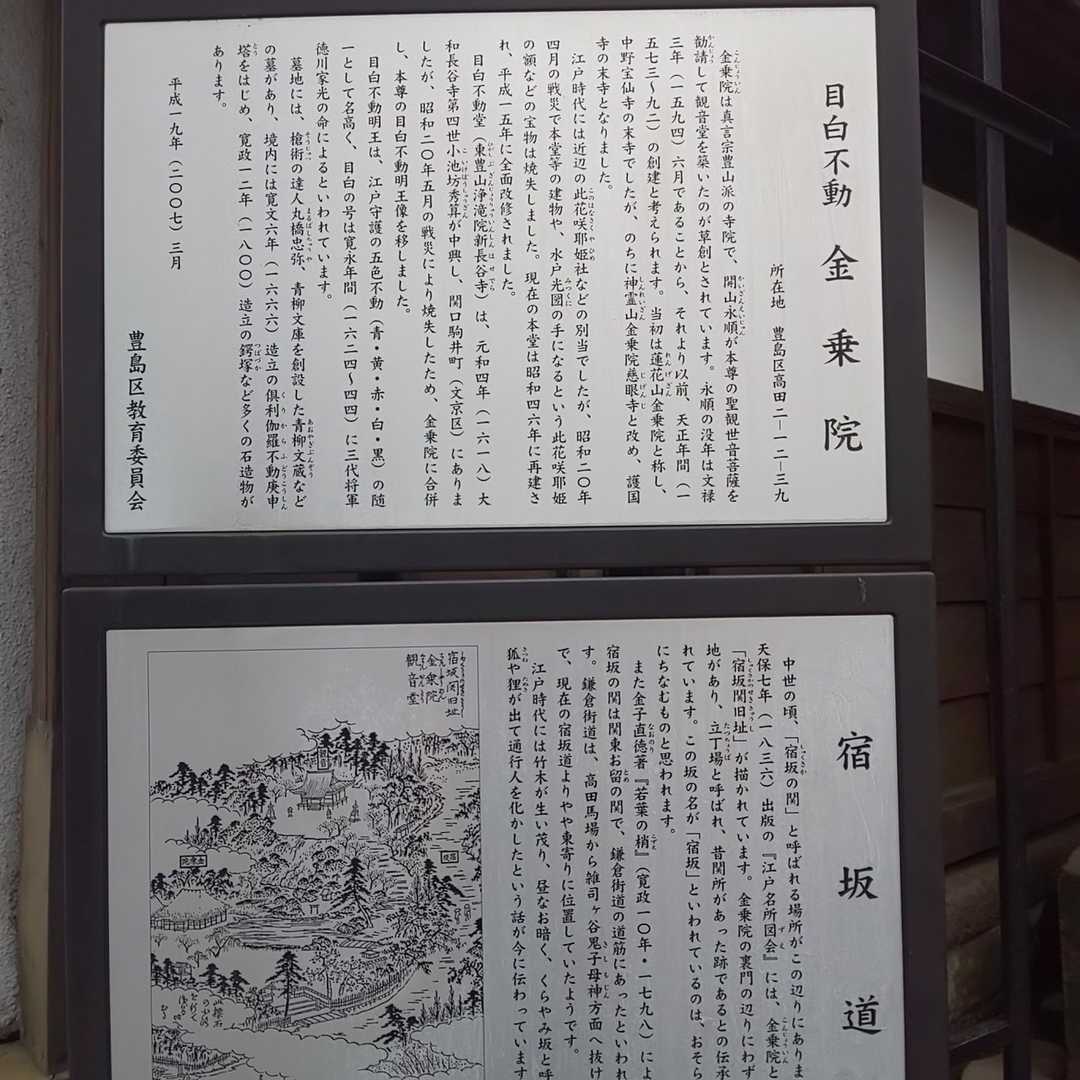 目白不動 金乗院
所在地 豊島区高田二－一二－三九
金乗院は真言宗豊山派の寺院で、開山永順が本尊の聖観世音菩薩を
勧請して観音堂を築いたのが草創とされています。永順の没年は文禄
三年（一五九四）六月であることから、それより以前、天正年間（一
五七三～九二）の創建と考えられます。当初は蓮花山金乗院と称し、
中野宝仙寺の末寺でしたが、のちに神霊山金乗院慈眼寺と改め、護国
寺の末寺となりました。
江戸時代には近辺の此花咲耶姫社などの別当でしたが、昭和二〇年
四月の戦災で本堂等の建物や、水戸光圀の手になるという此花咲耶姫
の額などの宝物は焼失しました。現在の本堂は昭和四六年に再建さ
れ、平成一五年に全面改修されました。
目白不動堂（東豊山浄滝院新長谷寺）は、元和四年（一六一八）大
和長谷寺第四世小池坊秀算が中興し、関口駒井町（文京区）にありま
したが、昭和二〇年五月の戦災により焼失したため、金乗院に合併
し、本尊の目白不動明王像を移しました。
目白不動明王は、江戸守護の五色不動（青・黄・赤・白・黒）の随
一として名高く、目白の号は寛永年間（一六二四～四四）に三代将軍
徳川家光の命によるといわれています。
墓地には、槍術の達人丸橋忠弥、青柳文庫を創設した青柳文蔵など
の墓があり、境内には寛文六年（一六六六）造立の倶利伽羅不動庚申
塔をはじめ、寛政一二年（一八〇〇）造立の鍔塚など多くの石造物が
あります。
平成一九年（二〇〇七）三月
豊島区教育委員会
宿坂道
中世の頃、「宿坂の関」と呼ばれる場所がこの辺りにありま
天保七年（一八三六）出版の『江戸名所図会』には、金乗院と
「宿坂関旧址」が描かれています。金乗院の裏門の辺りにわず
地があり、立丁場と呼ばれ、昔関所があった跡であるとの伝承
れています。この坂の名が「宿坂」といわれているのは、おそら
にちなむものと思われます。
また金子直徳著『若葉の梢』（寛政一〇年・一七九八）によ
宿坂の関は関東お留の関で、鎌倉街道の道筋にあったといわれ
す。鎌倉街道は、高田馬場から雑司ヶ谷鬼子母神方面へ抜け
で、現在の宿坂道よりやや東寄りに位置していたようです。
江戸時代には竹木が生い茂り、昼なお暗く、くらやみ坂と呼
狐や狸が出て通行人を化かしたという話が今に伝わっています
宿坂関旧址
金乗院
観音堂